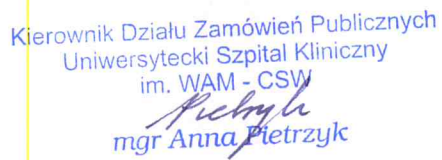 Kierownik Działu Zamówień Publicznych
Uniwersytecki Szpital Kliniczny
im. WAM - CSW
mgr Anna Pietrzyk